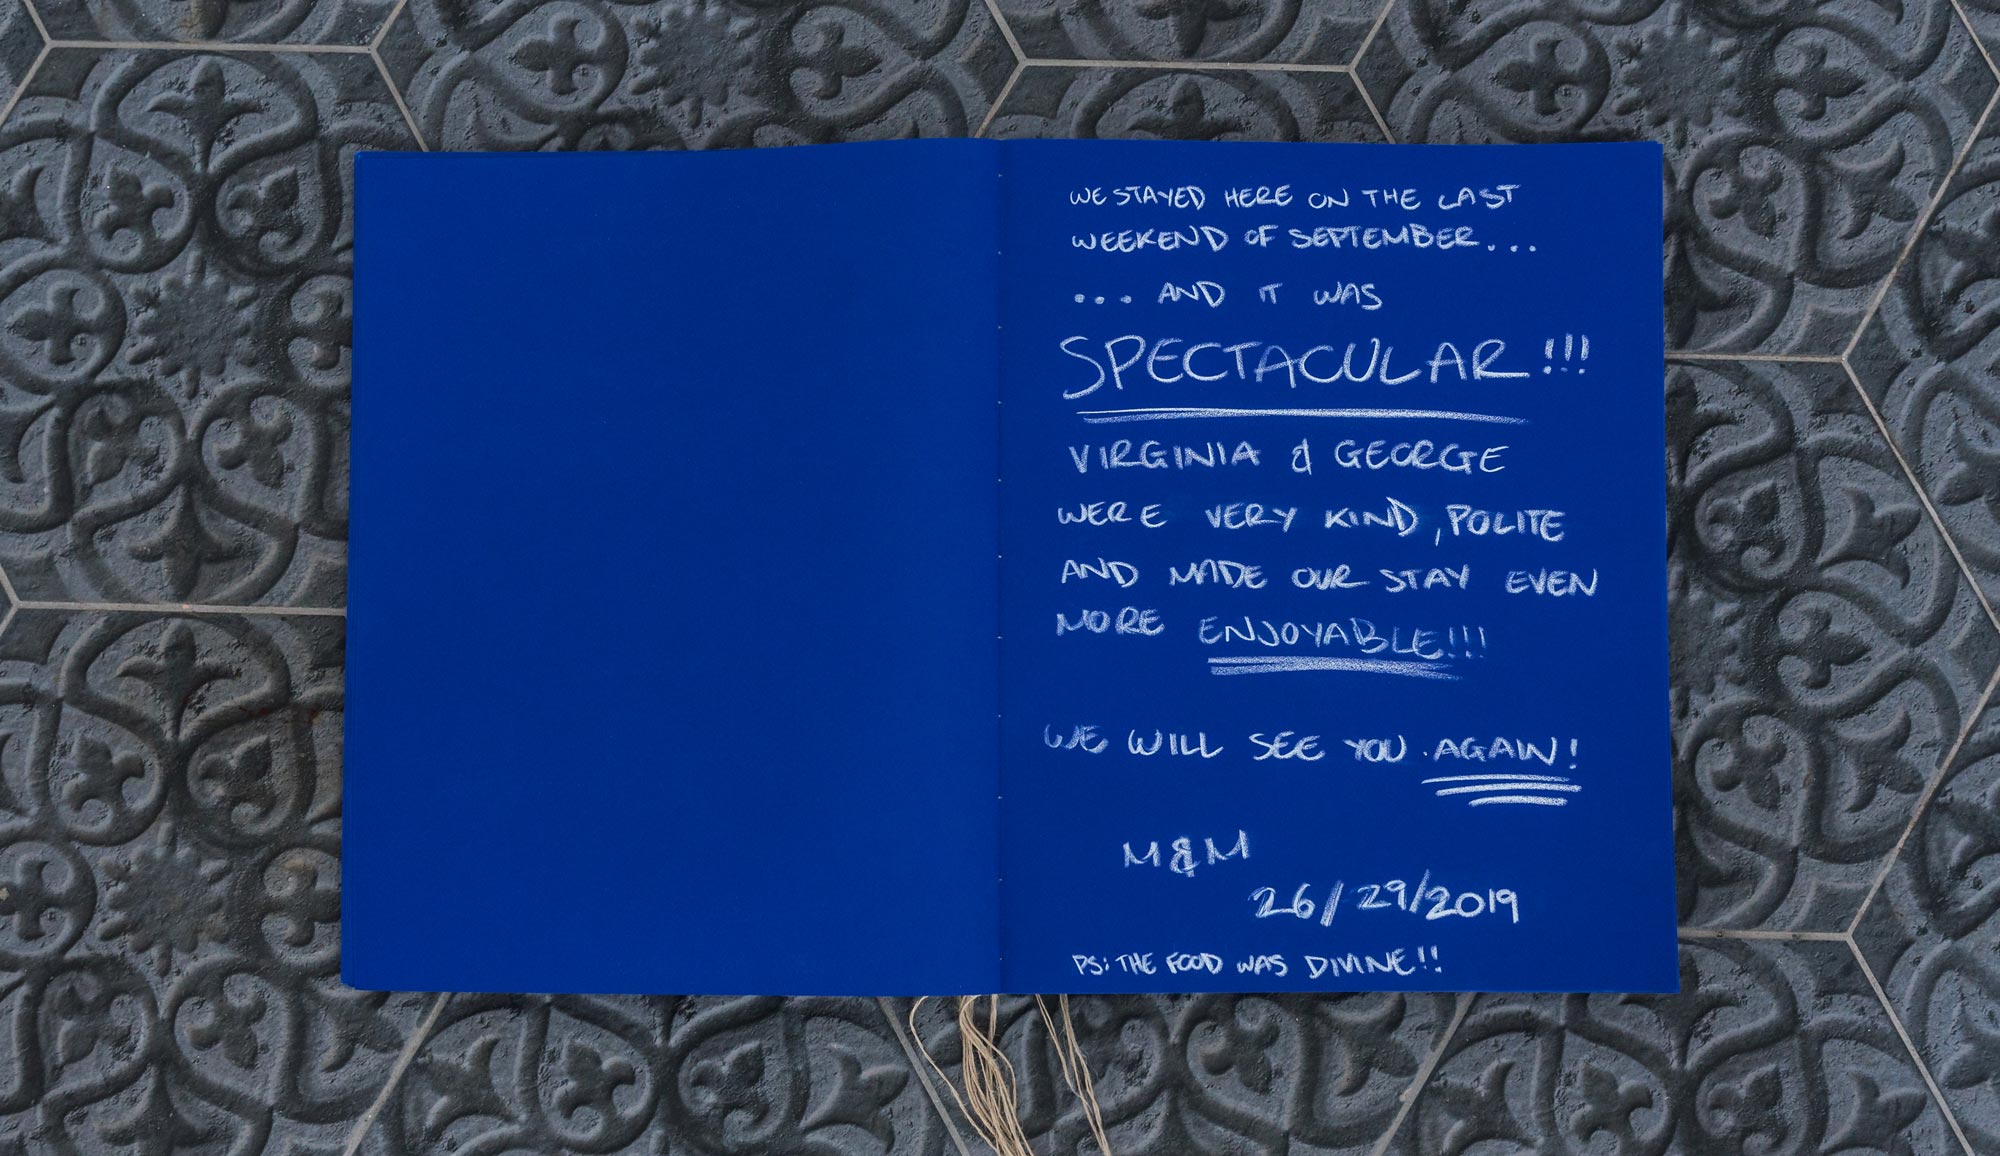 WE STAYED HERE ON THE LAST
WEEKEND OF SEPTEMBER...
... AND IT WAS
SPECTACULAR!!!
VIRGINIA & GEORGE
WERE VERY KIND, POLITE
AND MADE OUR STAY EVEN
MORE ENJOYABLE!!!
WE WILL SEE YOU AGAIN!
M&M
26/29/2019
PS: THE FOOD WAS DIVINE!!